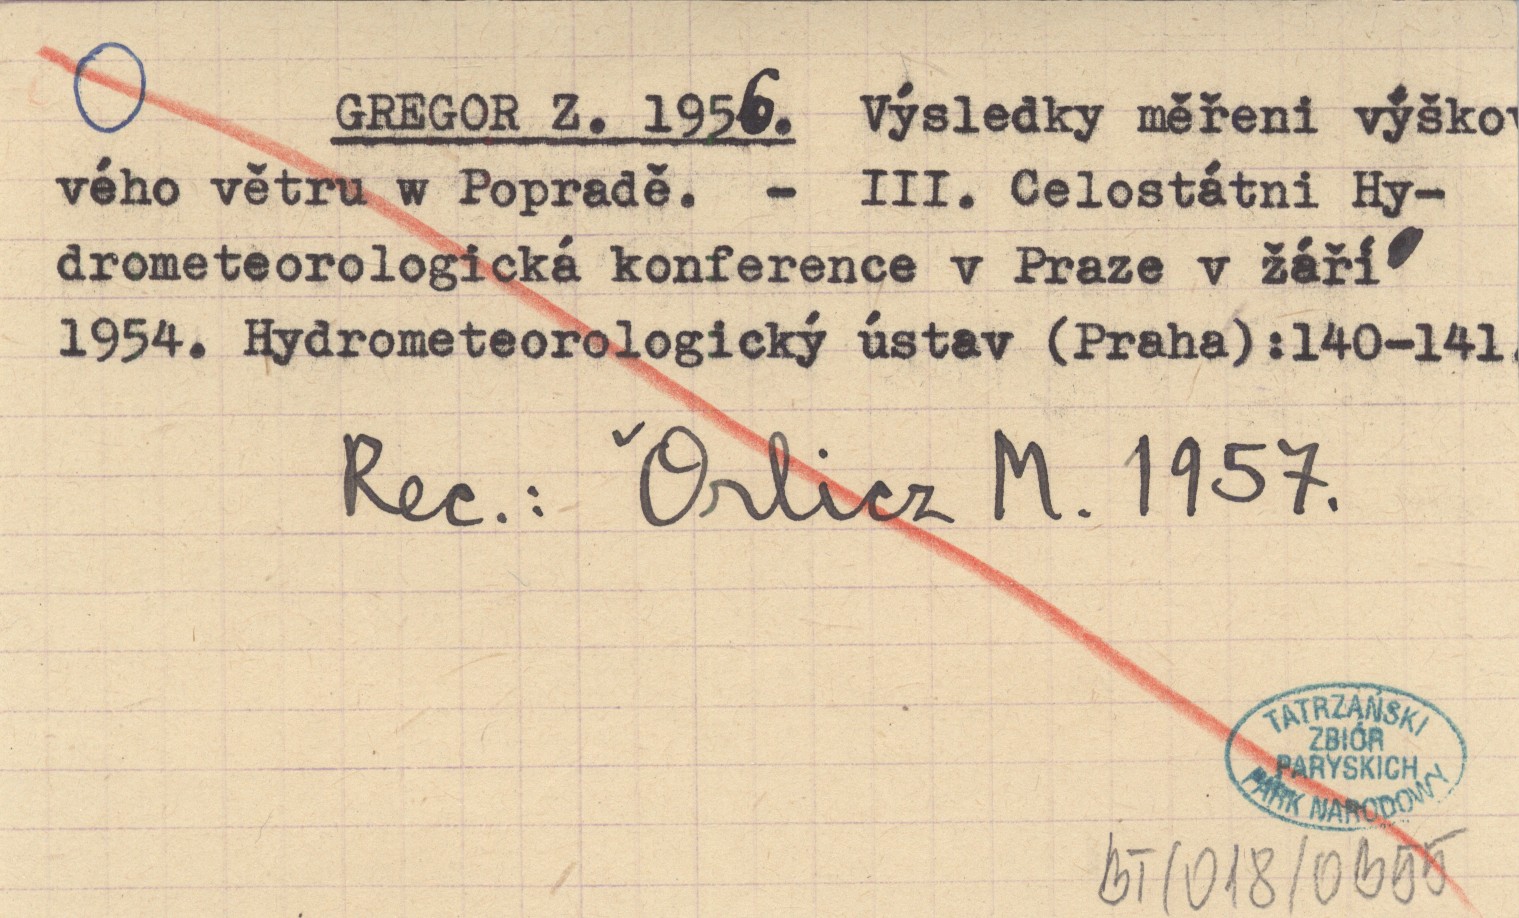 GREGOR Z. 1956. Výsledky měřeni výškov
vého větru w Popradě. - III. Celostátni Hy-
drometeorologická konference v Praze v žáří
1954. Hydrometeorologický ústav (Praha):140-141.
Rec.: Orlicz M. 1957.
TATRZAŃSKI
ZBIÓR
PARYSKICH
PARK NARODOWY